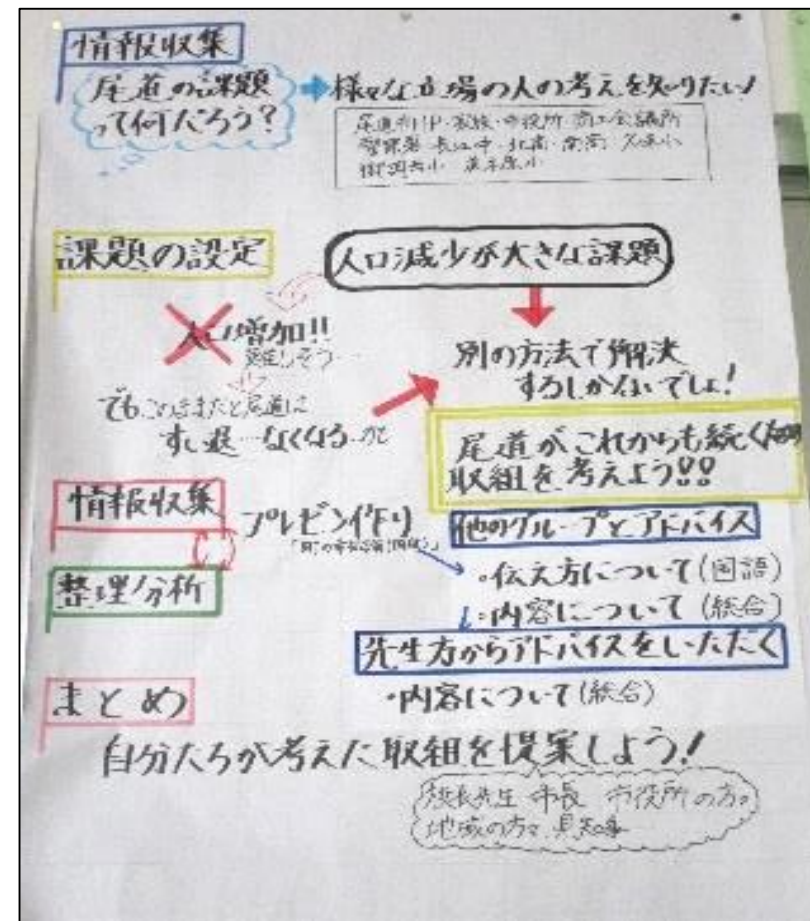 情報収集
尾道の課題
って何だろう?
様々な立場の人の考えを知りたい!
尾道市HP・家族・市役所・商工会議所
警察署・長江中・北高・南高・久保小
課題の設定
人口減少が大きな課題
人口増加!!
難しそう…
でもこのままだと尾道は
すい退…なくなる…かも
別の方法で解決
するしかないでしょ!
尾道がこれからも続くための
取組を考えよう!!
情報収集
プレゼン作り
整理/分析
他のグループとアドバイス
・伝え方について(国語)
・内容について(総合)
先生方からアドバイスをいただく
・内容について(総合)
まとめ
自分たちが考えた取組を提案しよう!
校長先生 市長 市役所の方々
地域の方々 県知事